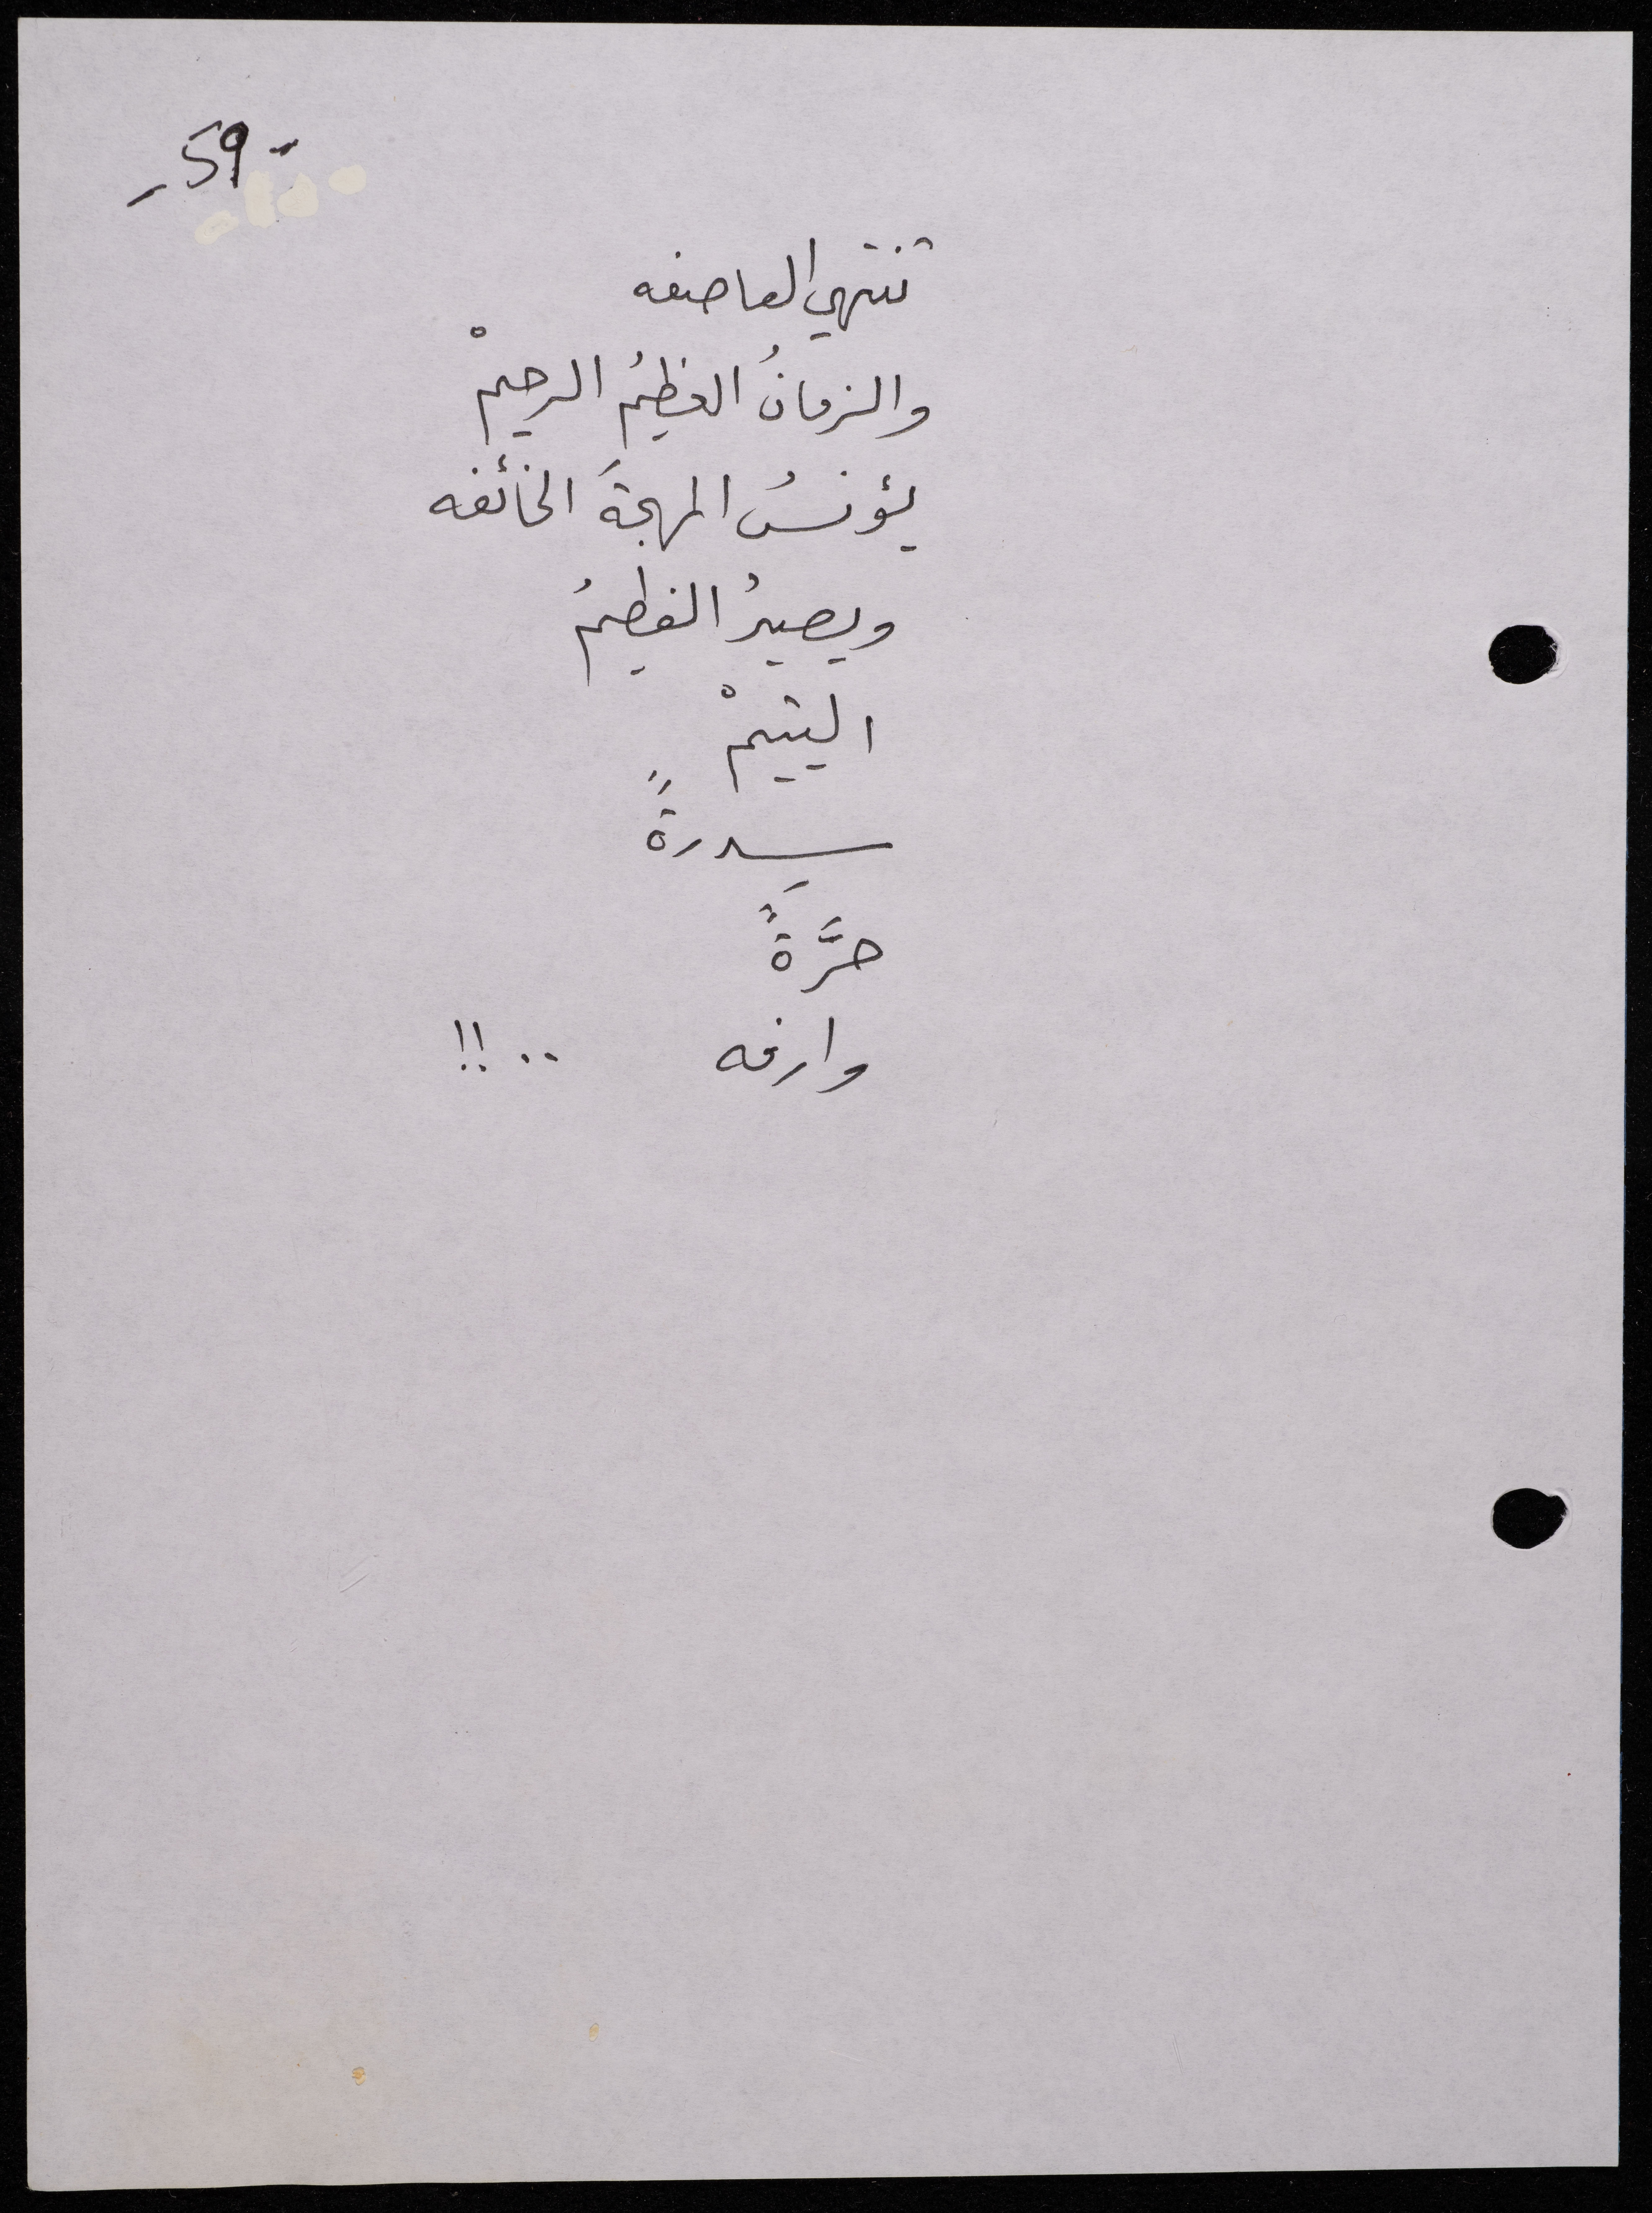 - 59 -
تنتهي العاصفه
والزمانُ العظيمُ الرحيمْ
يؤنسُ المهجةَ الخائفه
ويصيرُ الفطيمُ
اليتيمْ
سِدرةً
حرَّةً
وارفه .. !!